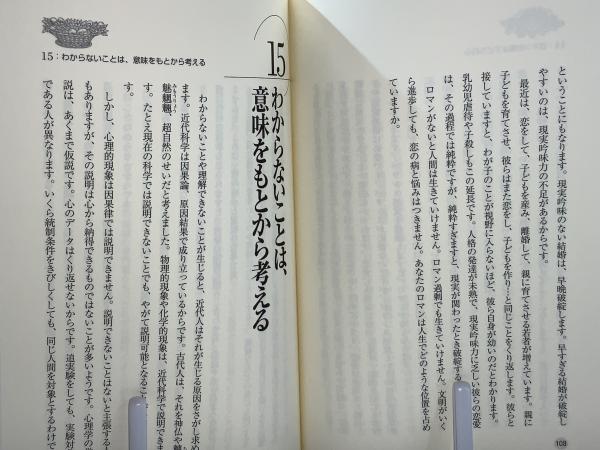 ということにもなります。現実吟味のない結婚は、早晩破綻します。早すぎる結婚が破綻し
やすいのは、現実吟味力の不足があるからです。
最近は、恋をして、子どもを産み、離婚して、親に育てさせる若者が増えています。親に
子どもを育てさせ、彼らはまた恋をし、子どもを作り…と同じことをくり返します。彼らと
接していますと、わが子のことが視野に入らないほど、彼ら自身が幼いのだとわかります。
乳幼児虐待や子殺しもこの延長です。人格の発達が未熟で、現実吟味力に乏しい彼らの恋愛
は、その過程では純粋ですが、純粋すぎますと、現実が関わったとき破綻する
ロマンがないと人間は生きていけません。ロマン過剰でも生きていけません。文明がいく
ら進歩しても、恋の病と悩みはつきません。あなたのロマンは人生でどのような位置を占め
ていますか。
108
15：わからないことは、意味をもとから考える
15 わからないことは、
意味をもとから考える
わからないことや理解できないことが生じると、近代人はそれが生じる原因をさがし求め
ます。近代科学は因果論、原因結果で成り立っているからです。古代人は、それを神仏や
魑魅魍魎、超自然のせいだと考えました。物理的現象や化学的現象は、近代科学で説明できま
す。たとえ現在の科学では説明できないことでも、やがて説明可能となること
しかし、心理的現象は因果律では説明できません。説明できないことはないと主張する
もありますが、その説明は心から納得できるものではないことが多いようです。心理学の
説は、あくまで仮説です。心のデータはくり返せないからです。追実験をしても、実験対
である人が異なります。いくら統制条件をきびしくしても、同じ人間を対象とするわけで